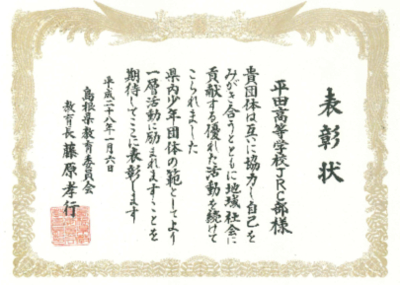 表彰状
平田高等学校JRC部様
貴団体は互いに協力し自己を
みがき合うとともに地域社会に
貢献する優れた活動を続けて
こられました
県内少年団体の範としてより
一層活動に励まれますことを
期待してここに表彰します
平成二十八年一月六日
島根県教育委員会
教育長 藤原孝行